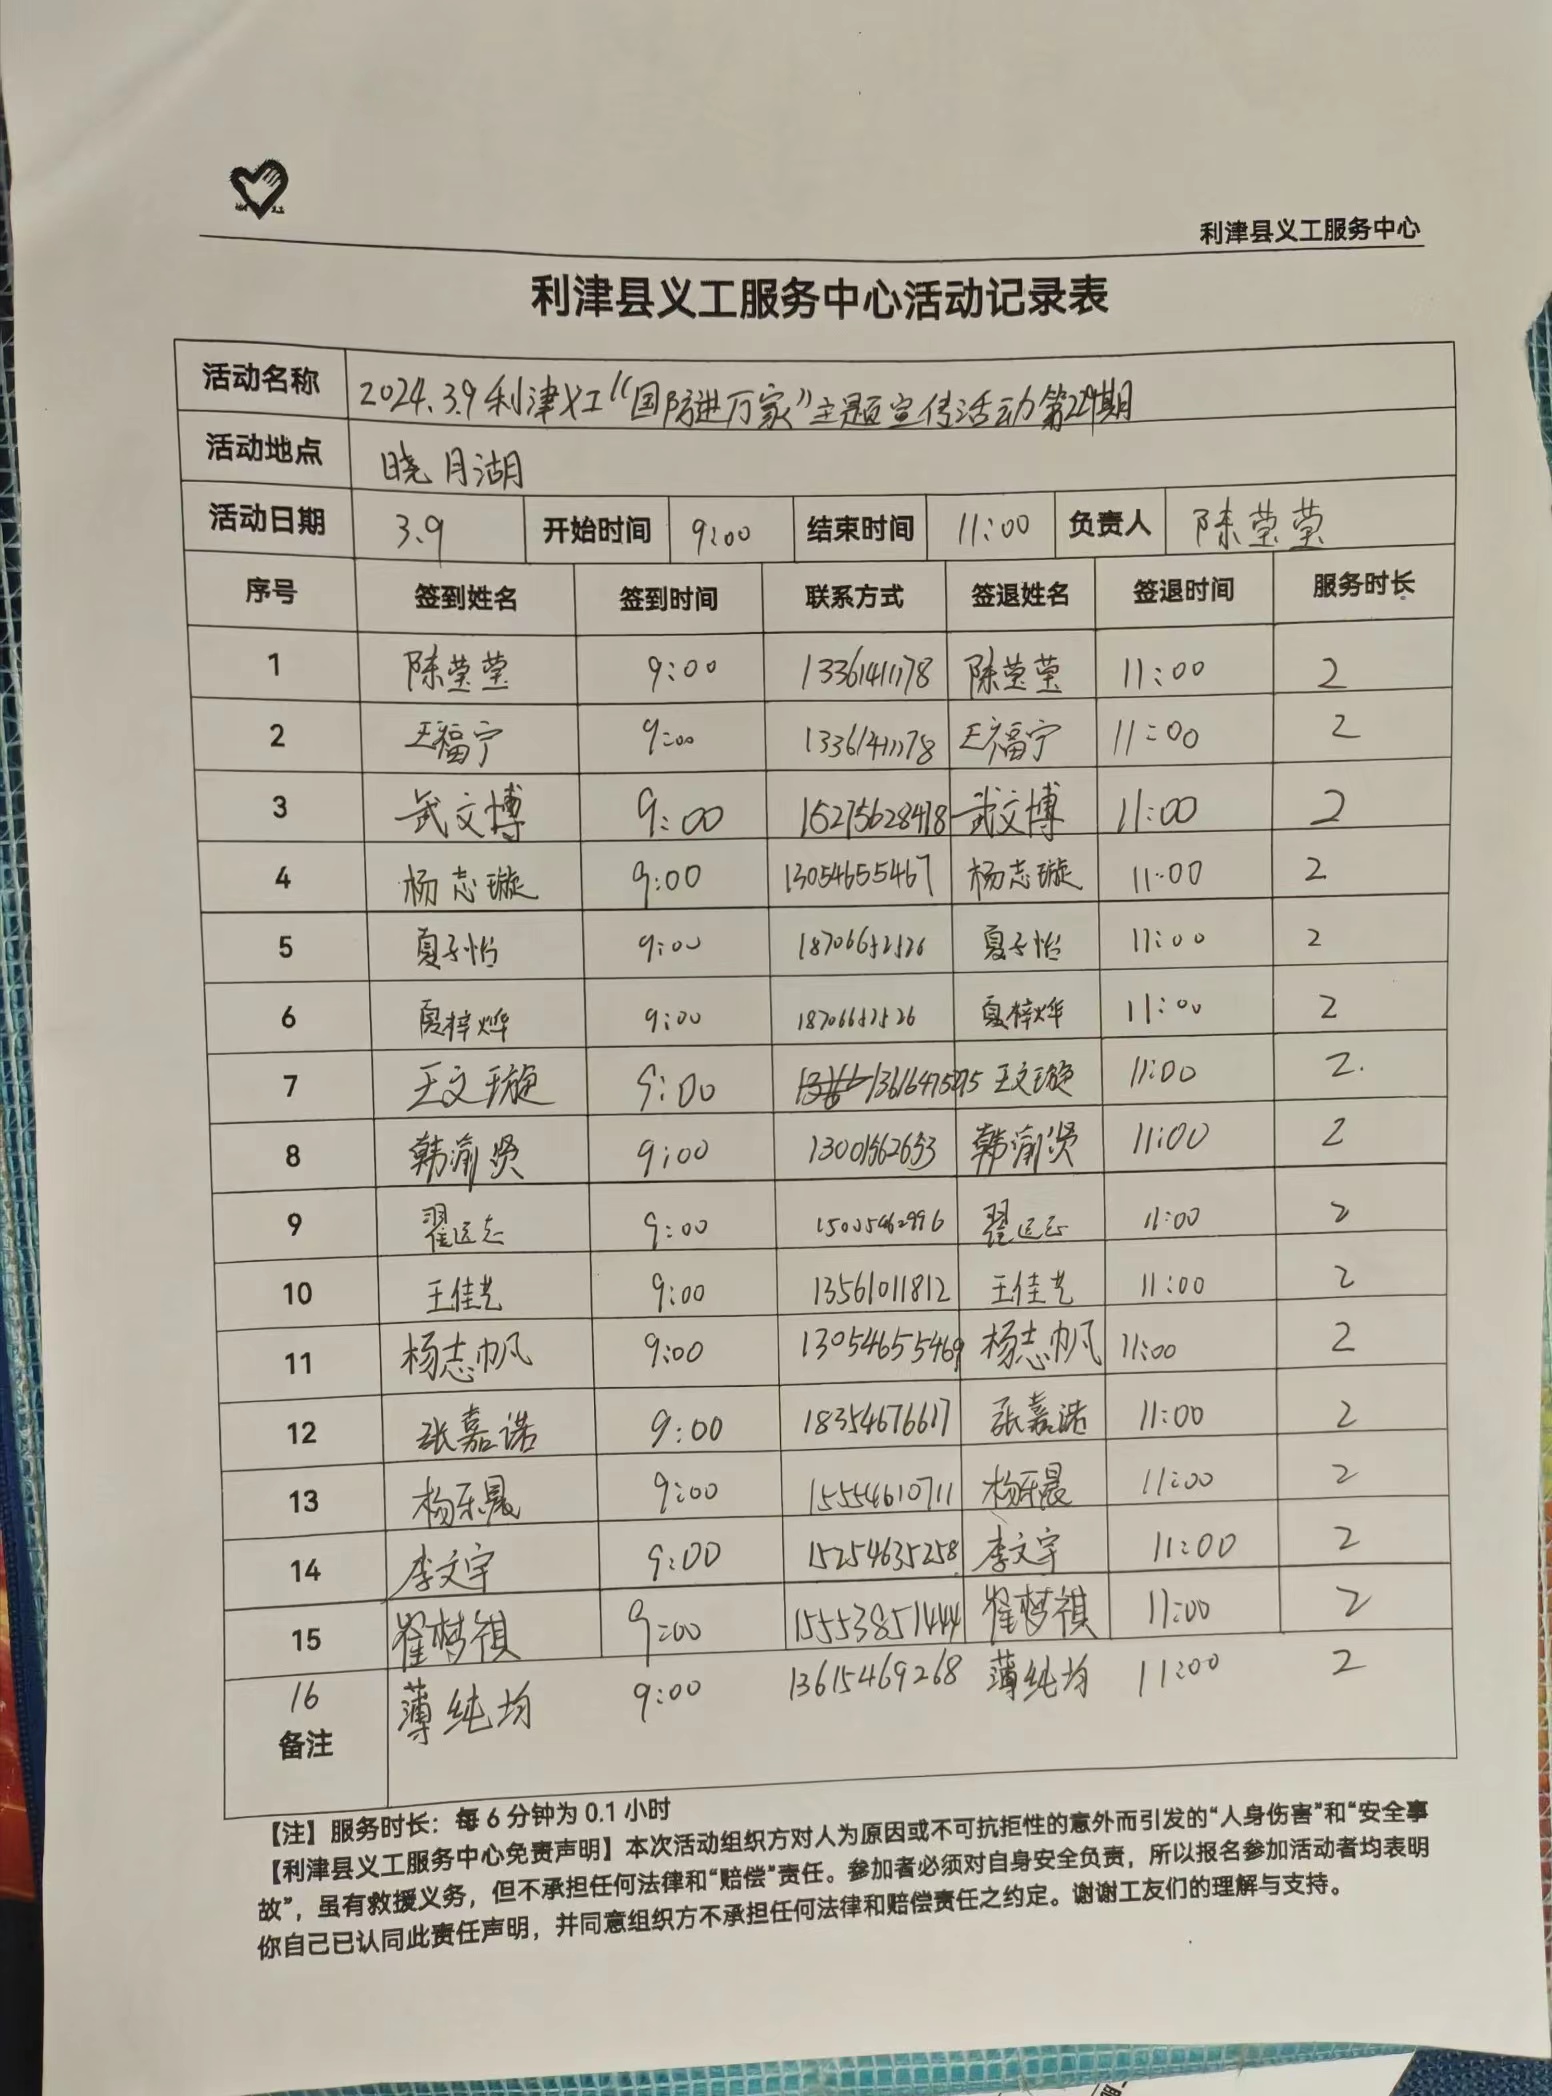 利津县义工服务中心
利津县义工服务中心活动记录表
活动名称 2024.3.9利津义工“国防进万家”主题宣传活动第229期
活动地点 晓月湖
活动日期 3.9 开始时间 9:00 结束时间 11:00 负责人 陈莹莹
序号 签到姓名 签到时间 联系方式 签退姓名 签退时间 服务时长
1 陈莹莹 9:00 13361411178 陈莹莹 11:00 2
2 王福宁 9:00 13361411178 王福宁 11:00 2
3 武文博 9:00 15275628418 武文博 11:00 2
4 杨志璇 9:00 13054655467 杨志璇 11:00 2
5 夏子怡 9:00 18706652526 夏子怡 11:00 2
6 夏梓烨 9:00 18706652526 夏梓烨 11:00 2
7 王文璇 9:00 王文璇 11:00 2.
8 韩渝贤 9:00 13001562653 韩渝贤 11:00 2
9 翟远志 9:00 15005462996 翟远志 11:00 2
10 王佳艺 9:00 13561011812 王佳艺 11:00 2
11 杨志帆 9:00 13054655469 杨志帆 11:00 2
12 张嘉诺 9:00 18354676617 张嘉诺 11:00 2
13 杨乐晨 9:00 15554610711 杨乐晨 11:00 2
14 李文宇 9:00 15254635258 李文宇 11:00 2
15 翟梦祺 9:00 15553851444 翟梦祺 11:00 2
16 薄纯均 9:00 13615469268 薄纯均 11:00 2
备注
【注】服务时长：每6分钟为0.1小时
【利津县义工服务中心免责声明】本次活动组织方对人为原因或不可抗拒性的意外而引发的“人身伤害”和“安全事
故”，虽有救援义务，但不承担任何法律和“赔偿”责任。参加者必须对自身安全负责，所以报名参加活动者均表明
你自己已认同此责任声明，并同意组织方不承担任何法律和赔偿责任之约定。谢谢工友们的理解与支持。